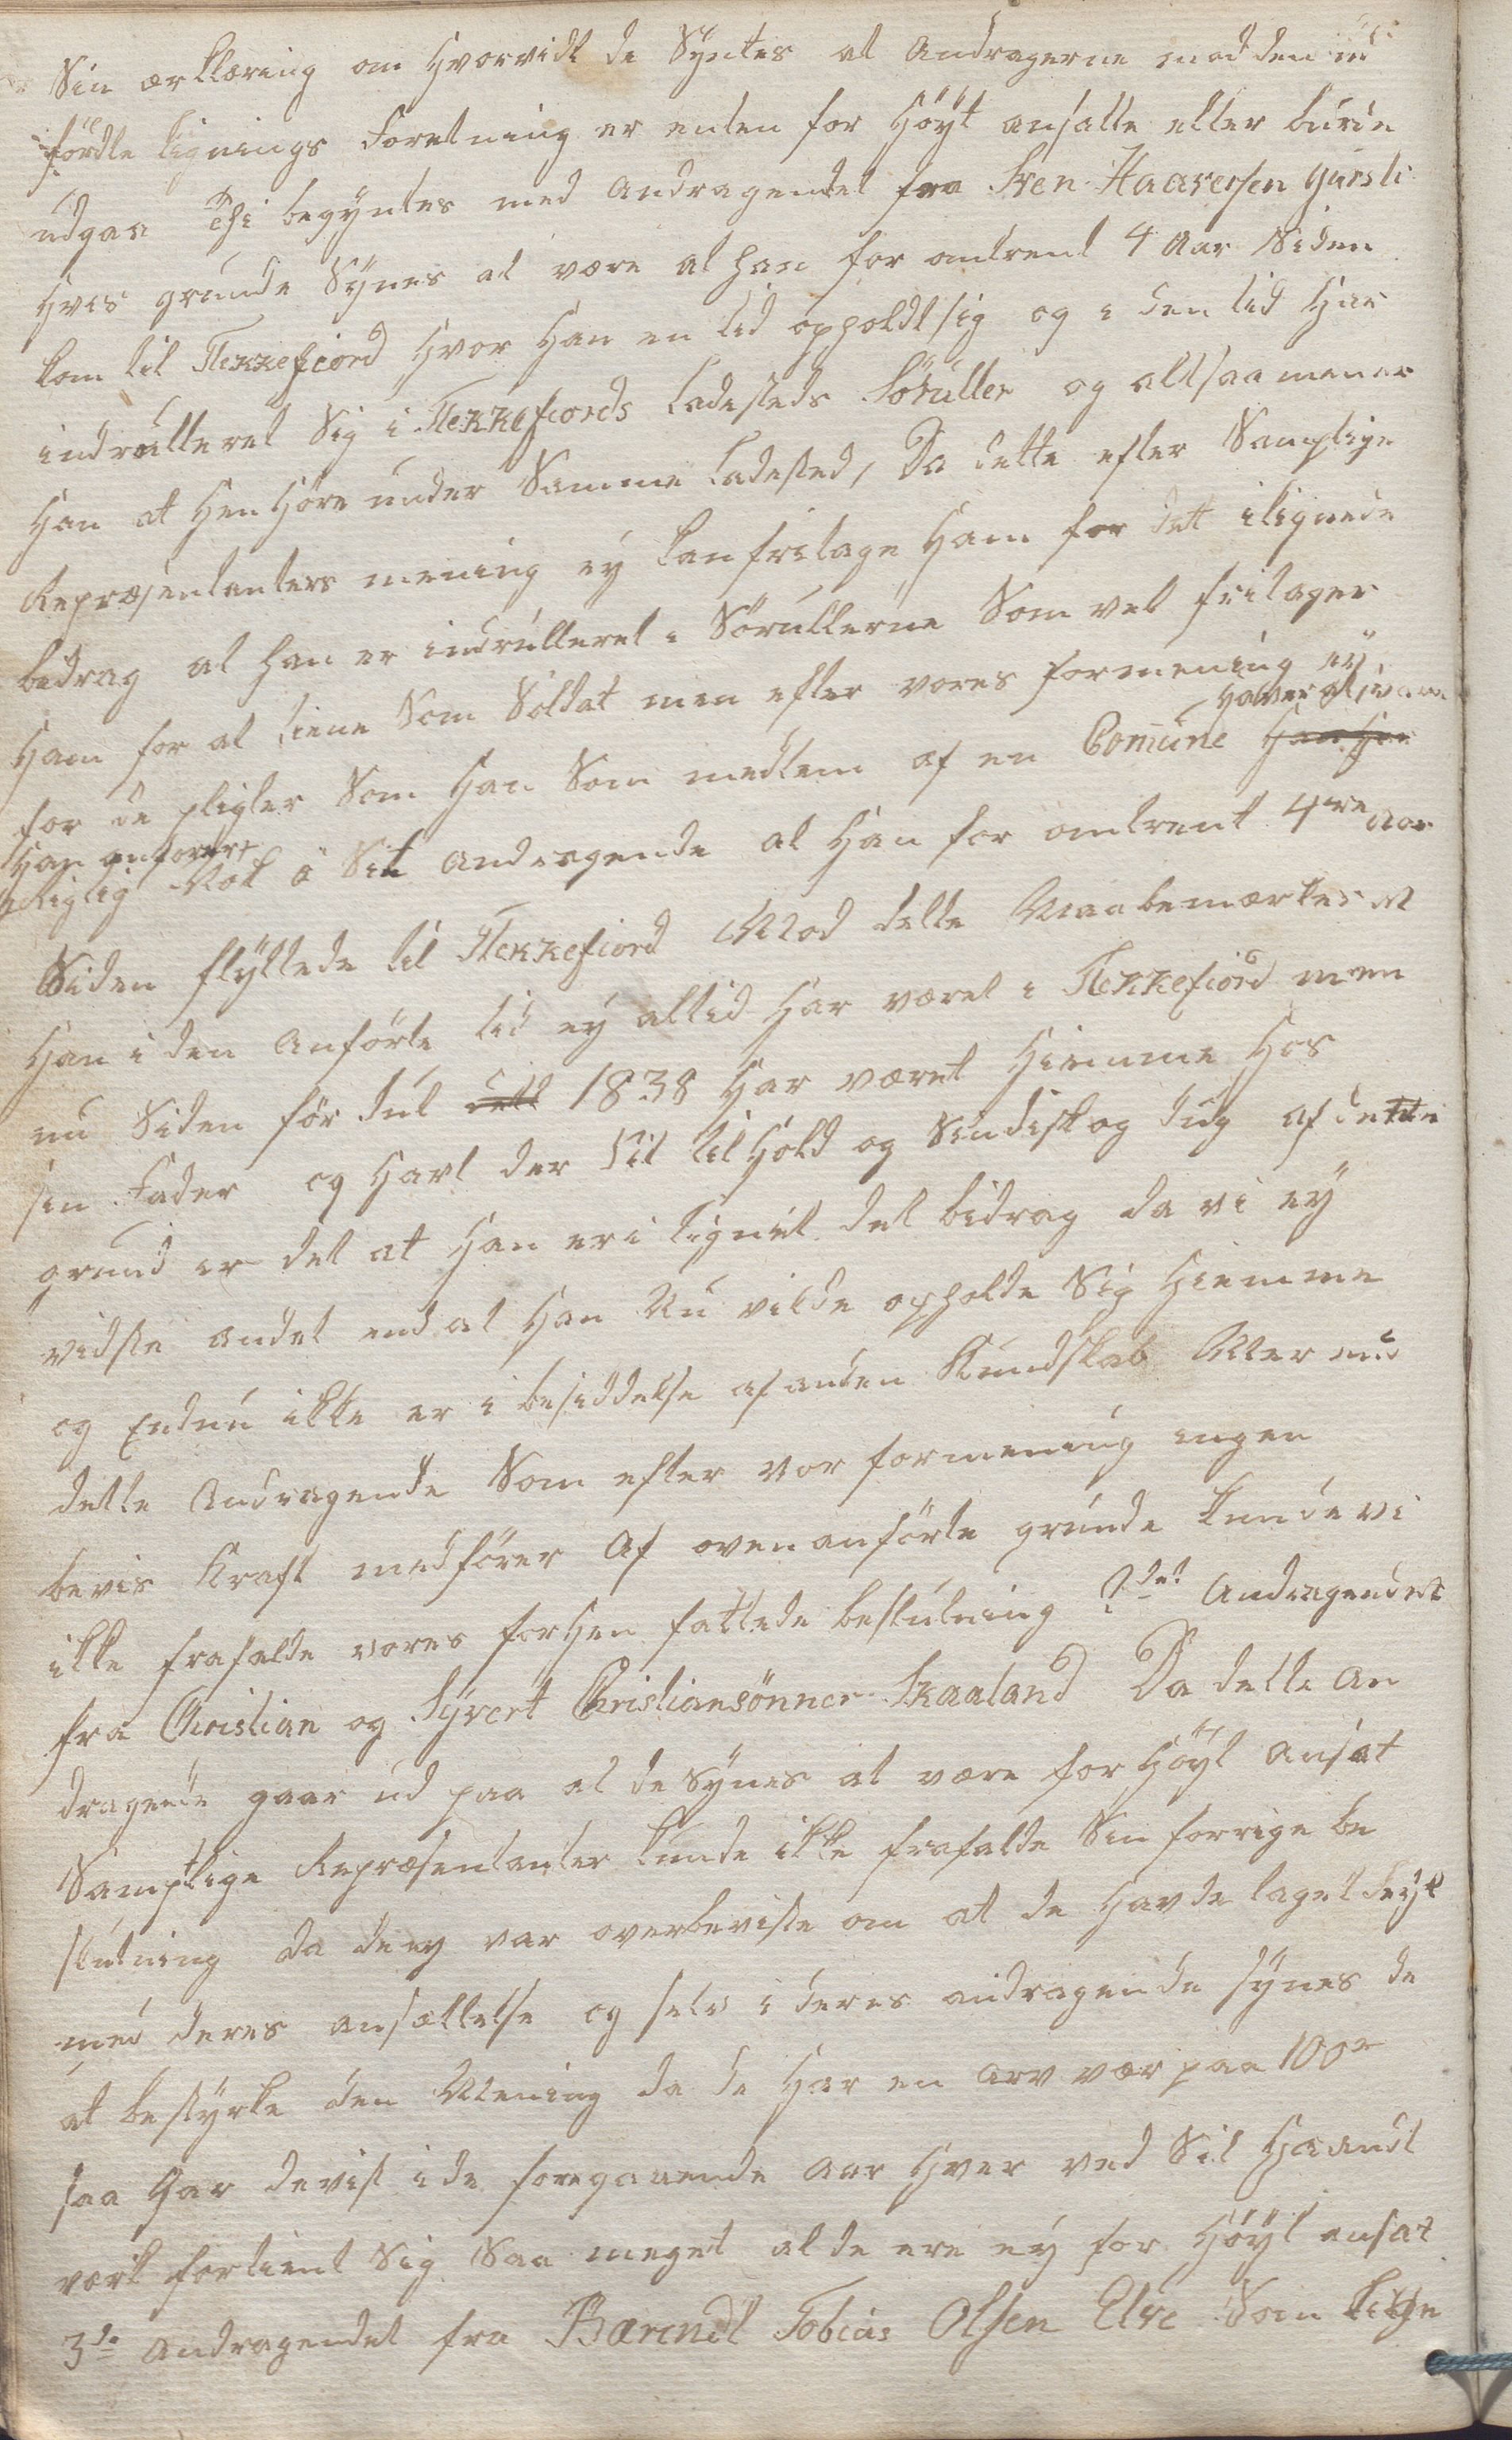 Sin ærklæring om Hvorvidt de Syntes at Andragerne mod den ud
förte Lignings Foretning er enten for Höyt ansatte eller burde
udgaa Thi begyntes med Andragendet fra Sven Haaversen Gursli
Hves grunde Synes at være at han for omtrent 4 Aar Siden
kom til Flekkefiord Hvor Han en tid opholdt sig og i den tid Har
indrulleret Sig i Flekkefiords Ladesteds Söruller og altsaa mener
Han at Hen Höre under Samme Ladested, Da dette efter Samptlige
Repræsentanters mening ey kan fritage Ham for det ilignede
bidrag at han er indrulleret i Sörullerne Som vel fritager
Ham for at tiene Som Soldat men efter vores formening ey
for de pligter Som Han Som medlem af en Comune haver at svare
Han anförer
Rigtig Nok i Sit andragende at Han for omtrent 4re Aar
Siden flyttede til Flekkefiord Mod dette Maa bemærkes at
Han i den Anförte tid ey altid Har været i Flekkefiord men
nu Siden för Jul 1838 Har været Hiemme Hos
sin Fader og Havt der Sit tilHold og af dette
grund er det at Han er i lignet det bidrag da vi ey
vidste andet end at Han Nu vilde opholde Sig Hiemme
og Endnu ikke er i besiddelse af anden Kundskab Mer end
dette Andragende Som efter vor formening ingen
bevis Kraft medförer Af ovenanförte grunde kunde vi
ikke frafalde vores forHen fattede beslutning 2det Andragendet
fra Christian og Syvert Christiansönner Skaaland Da dette An
dragende gaar ud paa at de Synes at være for Höyt Ansat
Samptlige Repræsentanter kunde ikke frafalde Sin forrige be
slutning da de ey var overbeviste om at de Havde taget feyl
med deres ansættelse og selv i deres andragende synes de
at bestyrke den Mening da de Har en Arv vær paa 100
saa Har de vist i de foregaaende Aar Hver ved Sit Haand
værk fortient Sig Saa meget at de ere ey for Höyt ansat
3de Andragendet fra Barendt Tobias Olsen Elve Som